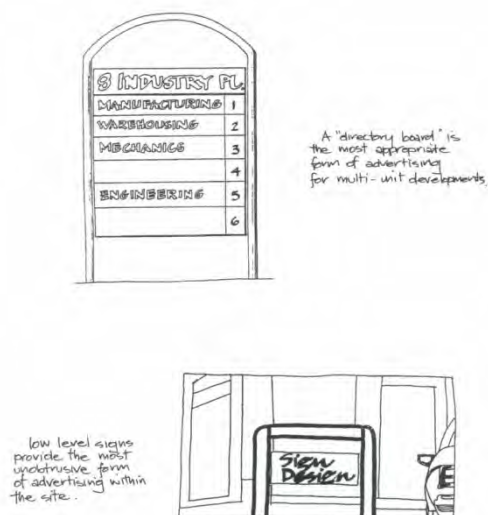 8 INDUSTRY PL.
MANUFACTURING 1
WAREHOUSING 2
MECHANICS 3
4
ENGINEERING 5
6
A "directory board" is
the most appropriate
form of advertising
for multi-unit developments
low level signs
provide the most
unobtrusive form
of advertising within
the site.
Sign
Design